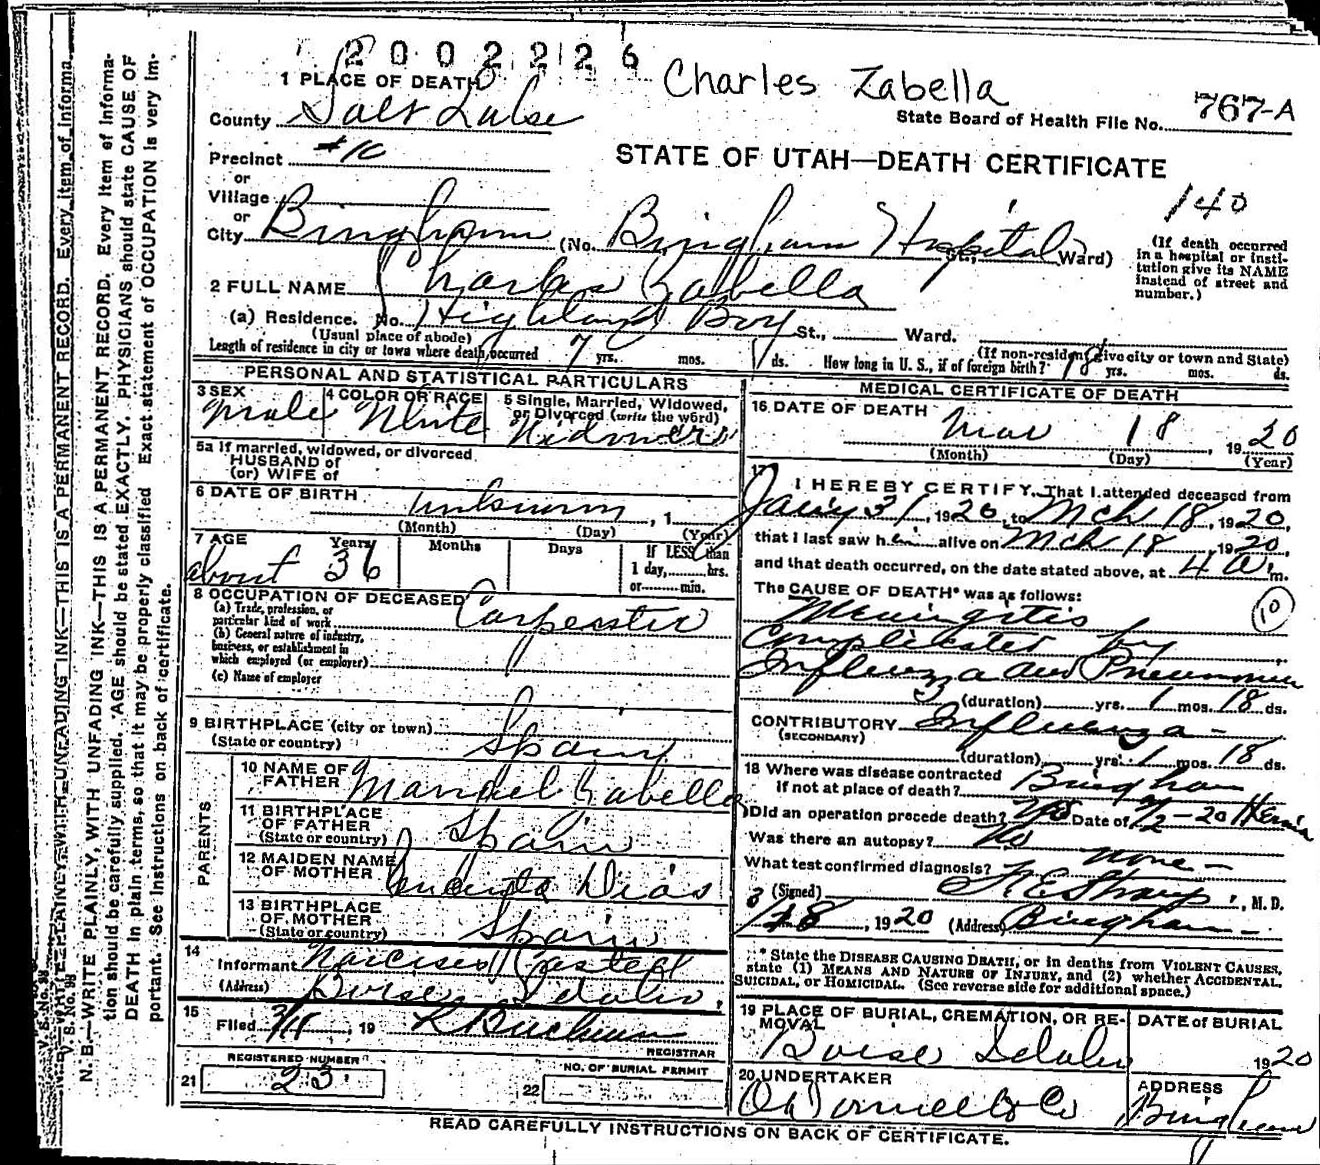 2002226
Charles Zabella
1 PLACE OF DEATH
State Board of Health File No. 767-A
County Salt Lake
Precinct #10
STATE OF UTAH—DEATH CERTIFICATE
or
Village
140
or
City Bingham (No. Bingham Hospital St., Ward)
(If death occurred in a hospital or institution give its NAME instead of street and number.)
2 FULL NAME Charles Zabella
(a) Residence. No. Highland Boy St., Ward.
(Usual place of abode)
(If non-resident give city or town and State)
Length of residence in city or town where death occurred 7 yrs. mos. ds. How long in U. S., if of foreign birth? 18 yrs. mos. ds.
PERSONAL AND STATISTICAL PARTICULARS
3 SEX
Male
4 COLOR OR RACE
White
5 Single, Married, Widowed, or Divorced (write the word)
Widower
5a If married, widowed, or divorced
HUSBAND of
(or) WIFE of
6 DATE OF BIRTH unknown, 1
(Month) (Day) (Year)
7 AGE Years Months Days If LESS than
about 36 1 day, hrs.
or min.
8 OCCUPATION OF DECEASED
(a) Trade, profession, or particular kind of work Carpenter
(b) General nature of industry, business, or establishment in which employed (or employer)
(c) Name of employer
9 BIRTHPLACE (city or town)
(State or country) Spain
PARENTS
10 NAME OF FATHER Manuel Zabella
11 BIRTHPLACE OF FATHER
(State or country) Spain
12 MAIDEN NAME OF MOTHER Dias
13 BIRTHPLACE OF MOTHER
(State or country) Spain
14
Informant Narciseo
(Address) Boise Idaho,
15
Filed 3/18, 19
REGISTRAR
REGISTERED NUMBER
21 23
NO. OF BURIAL PERMIT
22
MEDICAL CERTIFICATE OF DEATH
16 DATE OF DEATH
Mar 18, 1920
(Month) (Day) (Year)
17
I HEREBY CERTIFY, That I attended deceased from
Jany 31, 1920, to Mch 18, 1920,
that I last saw him alive on Mch 18, 1920,
and that death occurred, on the date stated above, at 4 A m.
The CAUSE OF DEATH* was as follows:
10
Meningitis
Complicated by
Influenza and Pneumonia
(duration) yrs. 1 mos. 18 ds.
CONTRIBUTORY Influenza -
(SECONDARY)
(duration) yrs. 1 mos. 18 ds.
18 Where was disease contracted
If not at place of death? Bingham
Did an operation precede death? Yes Date of 2/2-20 Hernia
Was there an autopsy? No
What test confirmed diagnosis? None -
(Signed) , M. D.
3/18, 1920 (Address) Bingham -
* State the DISEASE CAUSING DEATH, or in deaths from VIOLENT CAUSES, state (1) MEANS AND NATURE OF INJURY, and (2) whether ACCIDENTAL, SUICIDAL, or HOMICIDAL. (See reverse side for additional space.)
19 PLACE OF BURIAL, CREMATION, OR REMOVAL
Boise Idaho
DATE of BURIAL
1920
20 UNDERTAKER
O'Donnell & Co
ADDRESS
Bingham
READ CAREFULLY INSTRUCTIONS ON BACK OF CERTIFICATE.
N. B.—WRITE PLAINLY, WITH UNFADING INK—THIS IS A PERMANENT RECORD. Every item of information should be carefully supplied. AGE should be stated EXACTLY. PHYSICIANS should state CAUSE OF DEATH in plain terms, so that it may be properly classified. Exact statement of OCCUPATION is very important. See Instructions on back of certificate.
V. S. No. 98